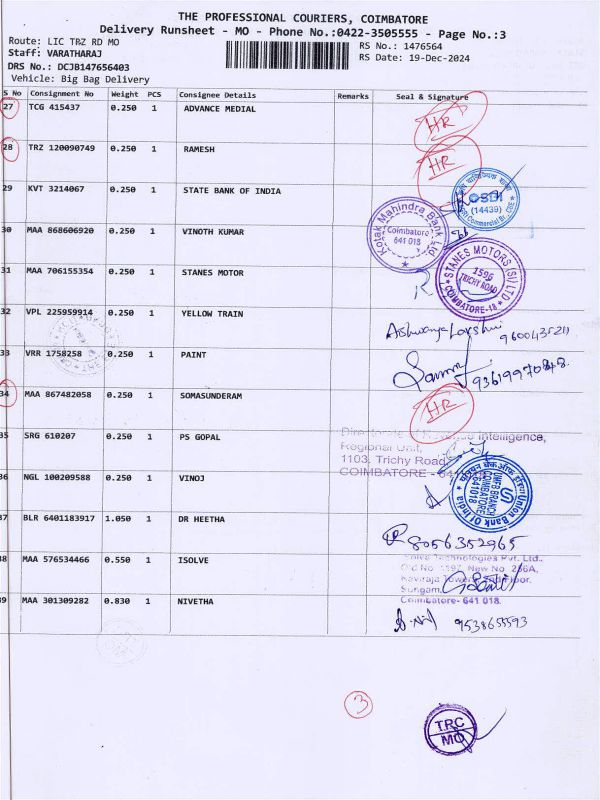 THE PROFESSIONAL COURIERS, COIMBATORE
Delivery Runsheet - MO - Phone No.:0422-3505555 - Page No.:3
Route: LIC TRZ RD MO
RS No.: 1476564
Staff: VARATHARAJ
RS Date: 19-Dec-2024
DRS No.: DCJB147656403
Vehicle: Big Bag Delivery
S No Consignment No Weight PCS Consignee Details Remarks Seal & Signature
27 TCG 415437 0.250 1 ADVANCE MEDIAL HR
28 TRZ 120090749 0.250 1 RAMESH HR
29 KVT 3214067 0.250 1 STATE BANK OF INDIA
SBI
(14439)
30 MAA 868606920 0.250 1 VINOTH KUMAR
Kotak Mahindra Bank Ltd
Coimbatore
641 018
31 MAA 706155354 0.250 1 STANES MOTOR
STANES MOTORS (SI) LTD
1596
TRICHY ROAD
COIMBATORE-18
32 VPL 225959914 0.250 1 YELLOW TRAIN
9600435211
33 VRR 1758258 0.250 1 PAINT
34 MAA 867482058 0.250 1 SOMASUNDERAM HR
35 SRG 610207 0.250 1 PS GOPAL
Directorate of Revenue Intelligence,
Regional Unit,
1103, Trichy Road
COIMBATORE -
36 NGL 100209588 0.250 1 VINOJ
Union Bank Of India
COIMBATORE
641018
37 BLR 6401183917 1.050 1 DR HEETHA
8056352965
38 MAA 576534466 0.550 1 ISOLVE
Technologies Pvt. Ltd.,
Old No. 1597, New No. 256A,
Kaviraja Towers, 2nd Floor,
Sungam,
Coimbatore- 641 018.
39 MAA 301309282 0.830 1 NIVETHA
9538655593
3
T.R.C
MO